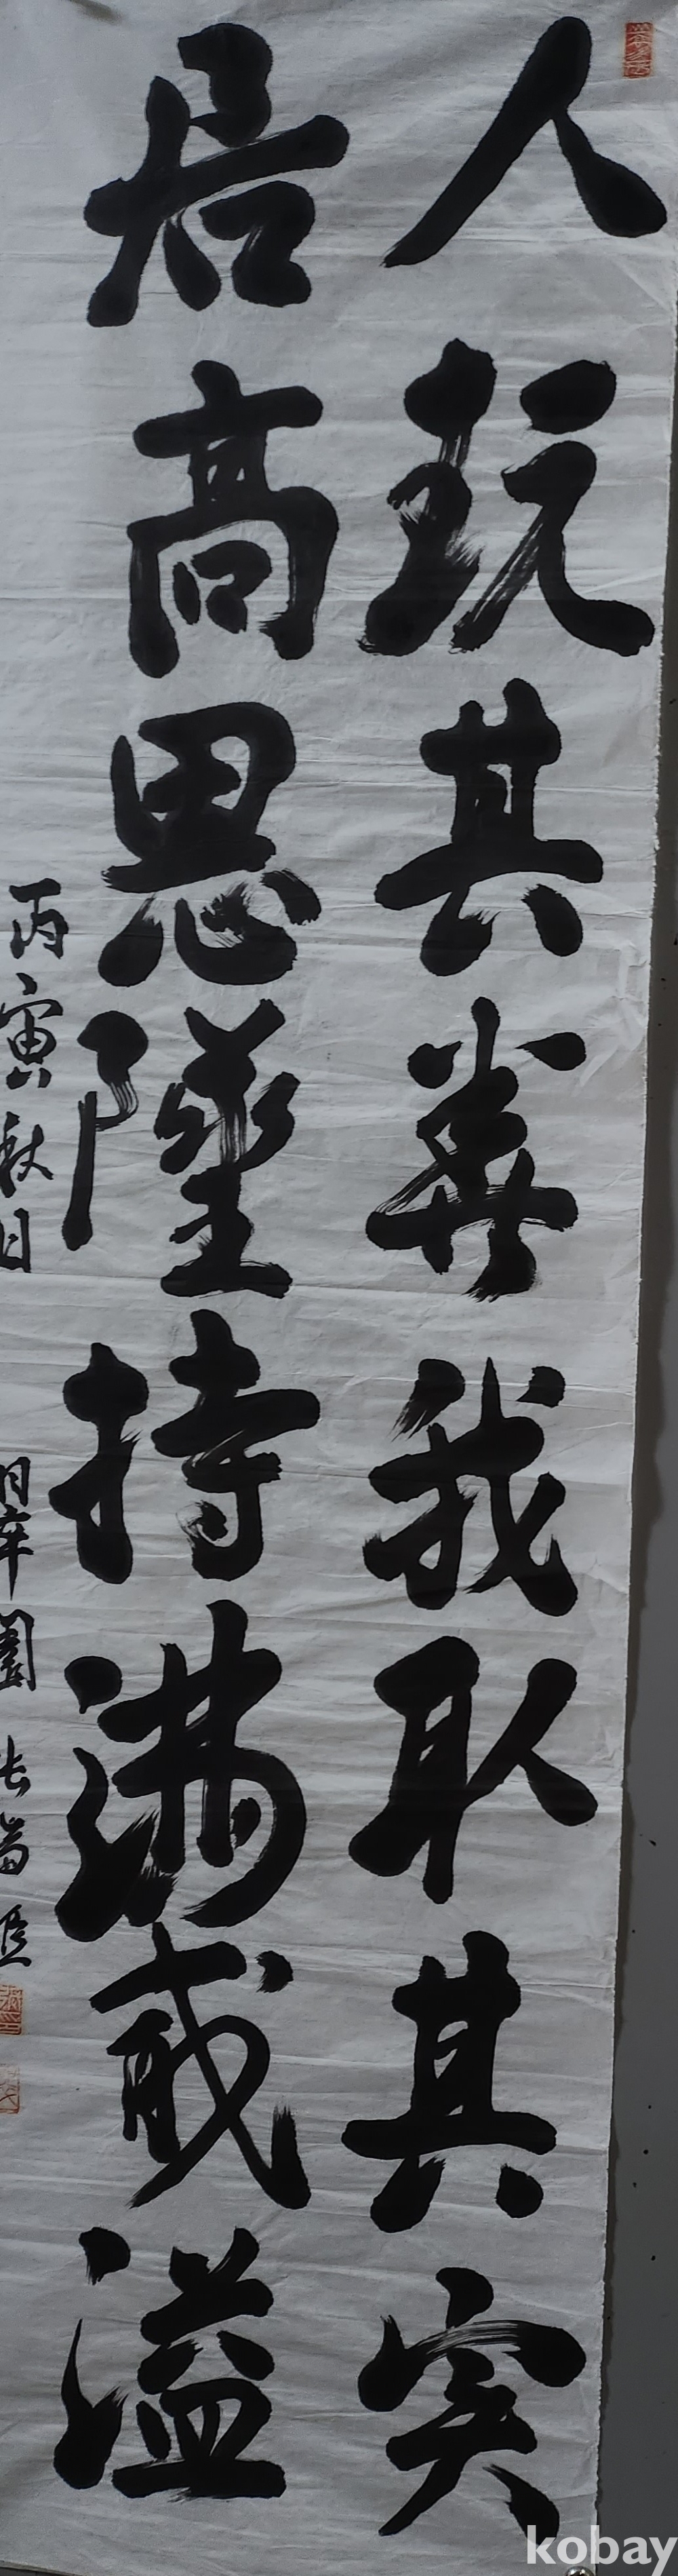 人玩其華我取其実
居高思墜持滿戒溢
丙寅秋日
kobay